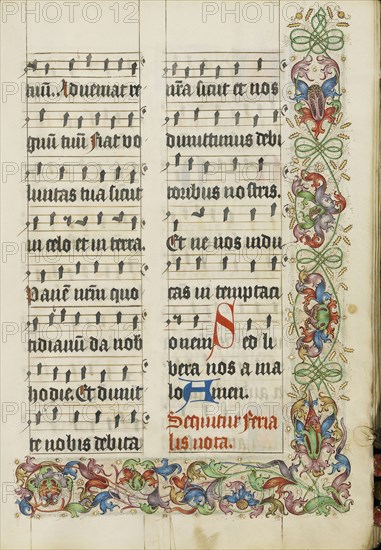 tuū. Adueniat re
gnū tuū. Fiat vo
luntas tua sicut
in celo et in terra.
Panē nr̄m quo
tidianū da nob
hodie. Et dimit
te nobis debita
nr̄a sicut et nos
dimittimus debi
toribus nostris.
Et ne nos indu
cas in temptaci
onem Sed li
bera nos a ma
lo Amen.
Sequitur feria
lis nota.
PHOTO12